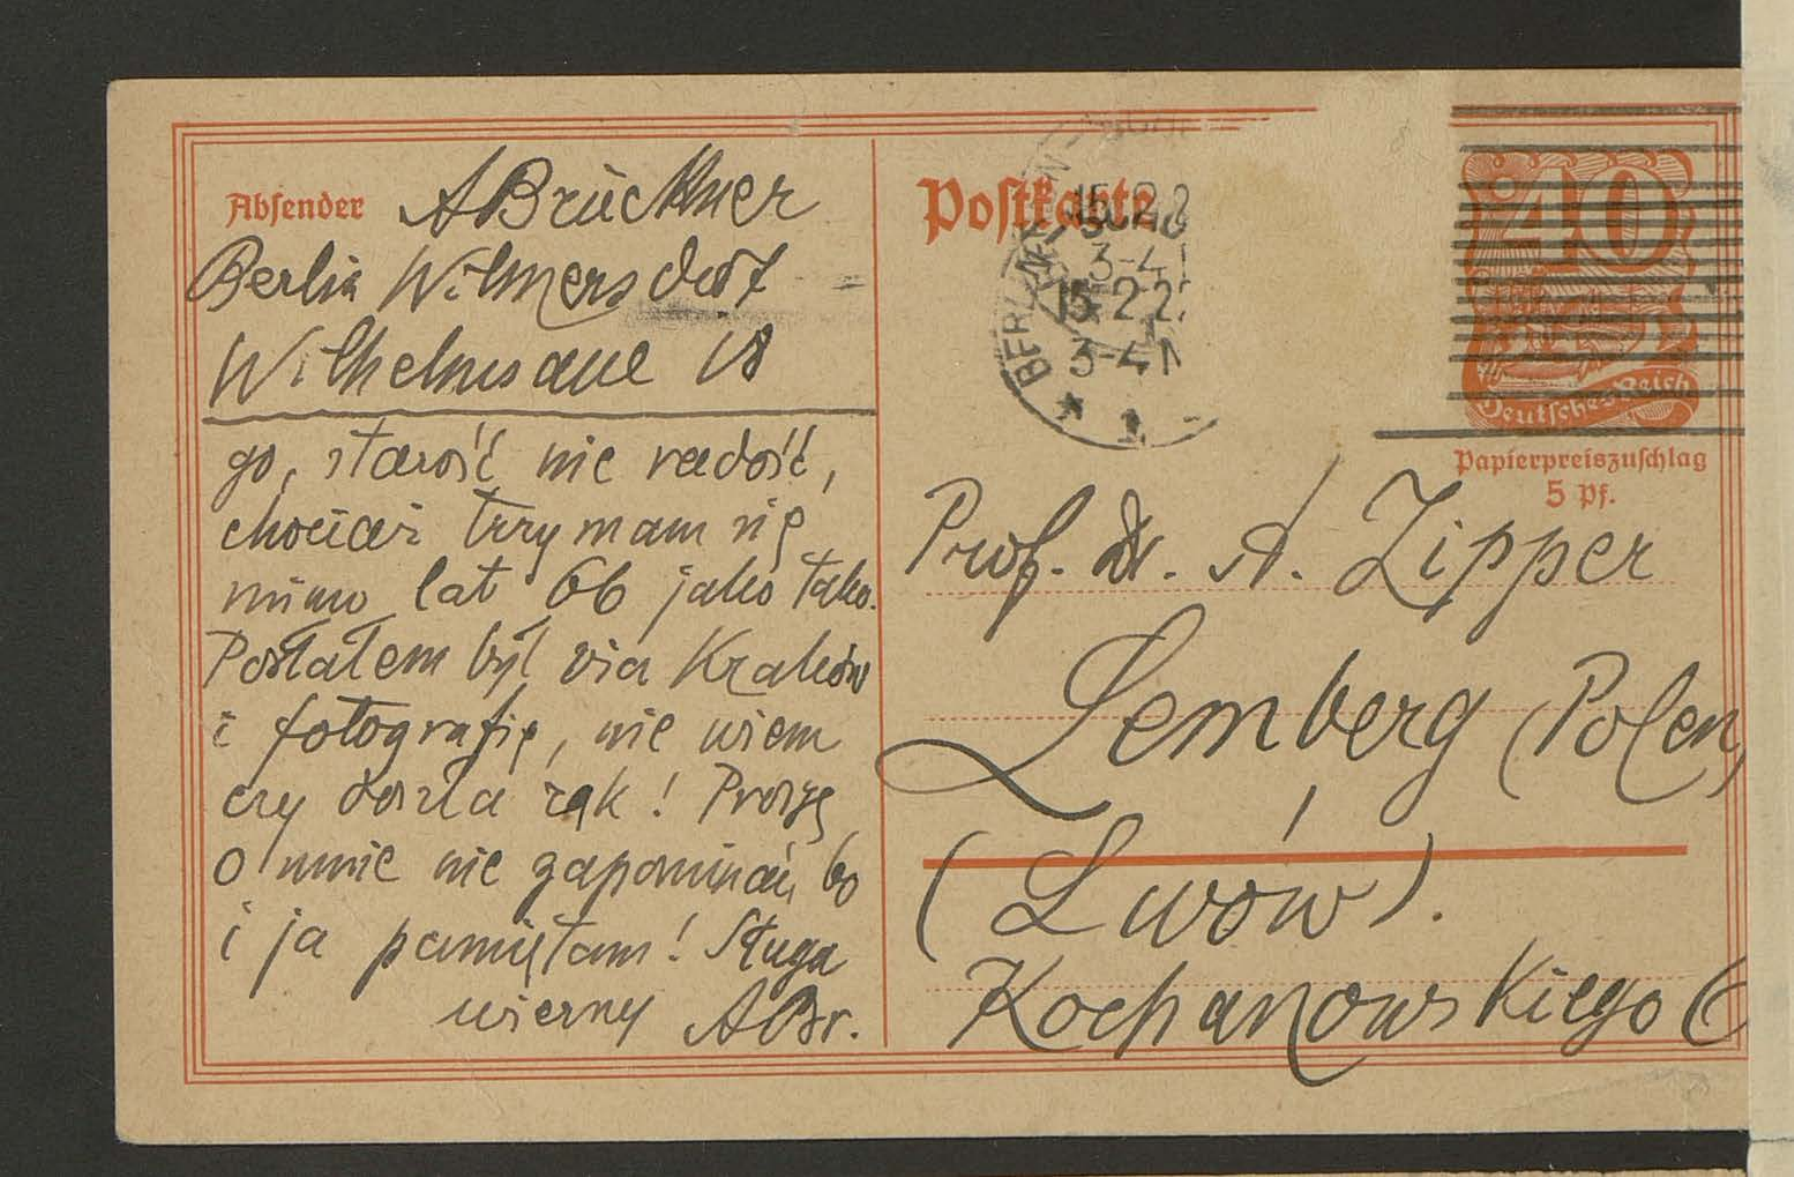 Absender ABrückner
Berlin Wilmersdorf
Wilhelmsaue 18
go, starość nie radość,
chociaż trzymam się
mimo lat 66 jako tako.
Posłałem był via Kraków
i fotografię, nie wiem
czy doszła rąk! Proszę
o mnie nie zapominać, bo
i ja pamiętam! Sługa
wierny ABr.
Postkarte
BERLIN
15.2.2
3-4
15.2.2
3-4N
* 1
40
Deutsches Reich
Papierpreiszuschlag
5 Pf.
Prof. Dr. A. Zipper
Lemberg (Polen)
(Lwów).
Kochanowskiego